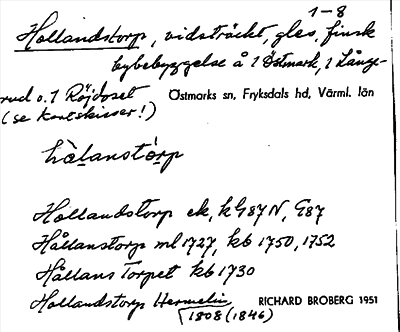 1-8
Hollandstorp, vidsträckt, gles, finsk
bybebyggelse å 1 Östmark, 1 Lång-
rud o. 1 Röjdoset Östmarks sn, Fryksdals hd, Värml. län
(se kartskisser!)
hålanstòrp
Hollandstorp ek, kG87N, G87
Hållanstorp ml 1727, kb 1750, 1752
Hållans Torpet kb 1730
Hollandstorp Hermelin RICHARD BROBERG 1951
1808 (1846)